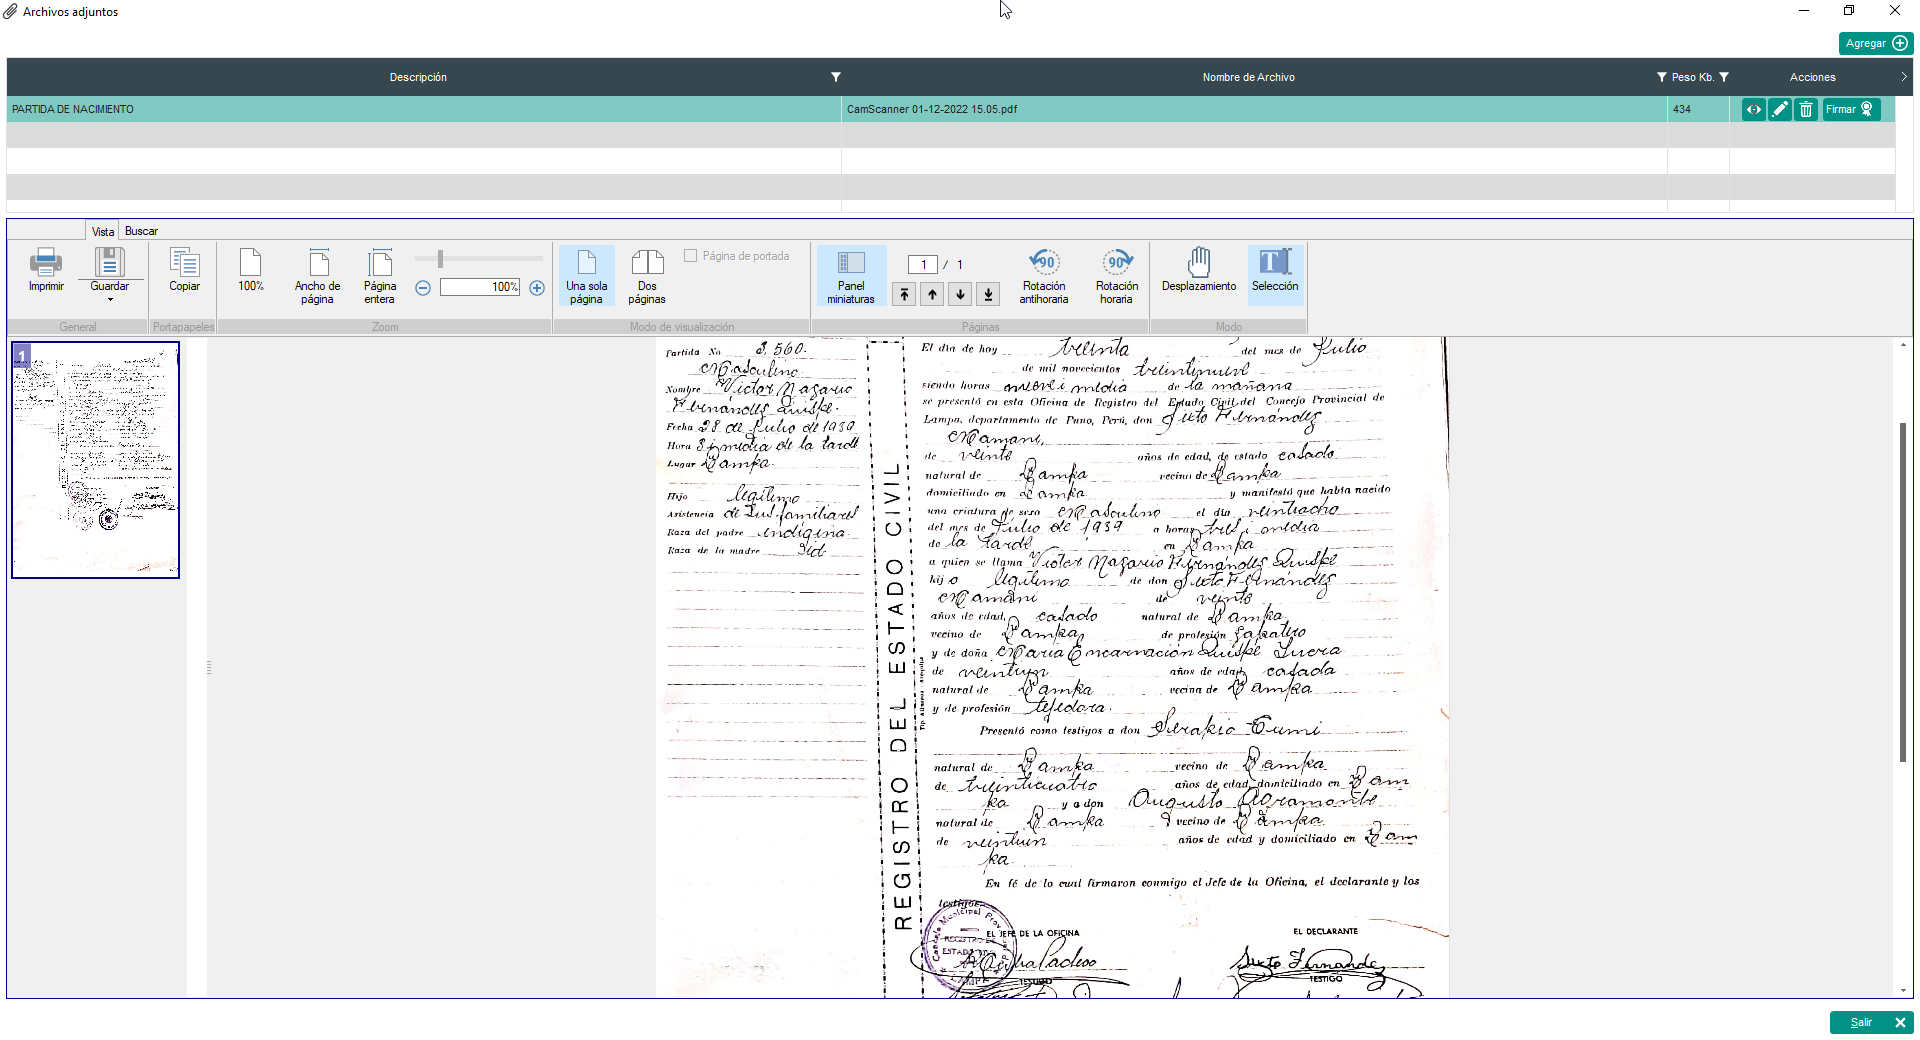 Archivos adjuntos
Agregar
Descripción
Nombre de Archivo
Peso Kb.
Acciones
PARTIDA DE NACIMIENTO
CamScanner 01-12-2022 15.05.pdf
434
Firmar
Vista
Buscar
Imprimir
Guardar
Copiar
100%
Ancho de página
Página entera
100%
Una sola página
Dos páginas
Página de portada
Panel miniaturas
1 / 1
90
Rotación antihoraria
90
Rotación horaria
Desplazamiento
Selección
General
Portapapeles
Zoom
Modo de visualización
Páginas
Modo
1
Partida No 3,560.
Masculino
Nombre Victor Nazario
Hernandes Quispe.
Fecha 28 de Julio de 1939
Hora 3 i media de la tarde
Lugar Lampa.
Hijo legítimo
Asistencia de sus familiares
Raza del padre indígina
Raza de la madre Yid
REGISTRO DEL ESTADO CIVIL
El día de hoy treinta del mes de Julio
de mil novecientos treintinueve
siendo horas nueve i media de la mañana
se presentó en esta Oficina de Registro del Estado Civil del Concejo Provincial de
Lampa, departamento de Puno, Perú, don Sixto Hernández
Mamani,
de veinte años de edad, de estado casado
natural de Lampa vecino de Lampa
domiciliado en Lampa y manifestó que había nacido
una criatura de sexo Masculino el día veintiocho
del mes de Julio de 1939 a horas tres i media
de la tarde en Lampa
a quien se llama Victor Nazario Hernandes Quispe
hijo legítimo de don Sixto Hernández
Mamani de veinte
años de edad, casado natural de Lampa
vecino de Lampa, de profesión zapatero
y de doña Maria Encarnación Quispe Lucra
de veintiun años de edad casada
natural de Lampa vecina de Lampa
y de profesión tejedora.
Presentó como testigos a don Serapio Tumi
natural de Lampa vecino de Lampa
de treinticuatro años de edad, domiciliado en Lam
pa y a don Augusto Agramonte
natural de Lampa vecino de Lampa
de veintiun años de edad y domiciliado en Lam
pa.
En fé de lo cual firmaron conmigo el Jefe de la Oficina, el declarante y los
testigos
EL JEFE DE LA OFICINA
EL DECLARANTE
Sixto Fernandez
TESTIGO
TESTIGO
Salir